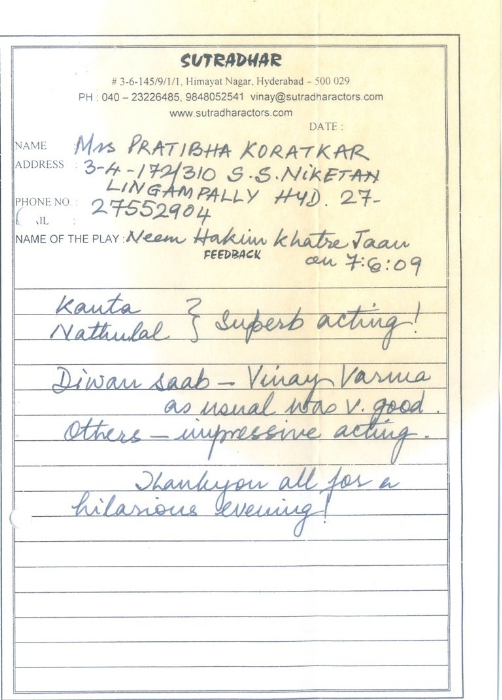 SUTRADHAR
# 3-6-145/9/1/1, Himayat Nagar, Hyderabad – 500 029
PH : 040 – 23226485, 9848052541 vinay@sutradharactors.com
www.sutradharactors.com
DATE :
NAME Mrs PRATIBHA KORATKAR
ADDRESS : 3-4-172/310 S.S.NIKETAN
LINGAMPALLY HYD. 27-
PHONE NO. : 27552904
IL :
NAME OF THE PLAY : Neem Hakim Khatre Jaan
FEEDBACK on 7:6:09
Kanta } Superb acting!
Nathulal
Diwan saab – Vinay Varma
as usual was v. good.
Others – impressive acting.
Thankyou all for a
hilarious evening!